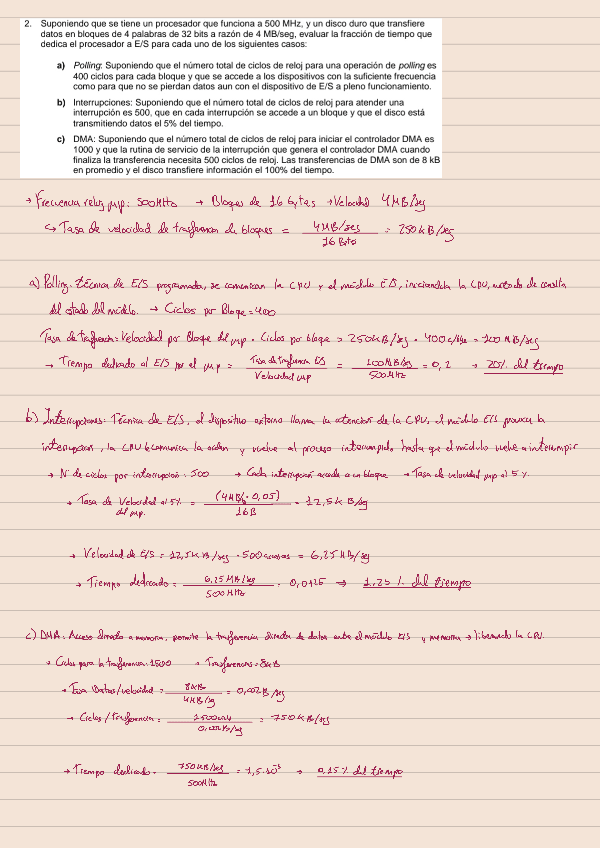 2. Suponiendo que se tiene un procesador que funciona a 500 MHz, y un disco duro que transfiere
datos en bloques de 4 palabras de 32 bits a razón de 4 MB/seg, evaluar la fracción de tiempo que
dedica el procesador a E/S para cada uno de los siguientes casos:
a) Polling: Suponiendo que el número total de ciclos de reloj para una operación de polling es
400 ciclos para cada bloque y que se accede a los dispositivos con la suficiente frecuencia
como para que no se pierdan datos aun con el dispositivo de E/S a pleno funcionamiento.
b) Interrupciones: Suponiendo que el número total de ciclos de reloj para atender una
interrupción es 500, que en cada interrupción se accede a un bloque y que el disco está
transmitiendo datos el 5% del tiempo.
c) DMA: Suponiendo que el número total de ciclos de reloj para iniciar el controlador DMA es
1000 y que la rutina de servicio de la interrupción que genera el controlador DMA cuando
finaliza la transferencia necesita 500 ciclos de reloj. Las transferencias de DMA son de 8 kB
en promedio y el disco transfiere información el 100% del tiempo.
→ Frecuencia reloj μp: 500MHz → Bloques de 16 bytes → Velocidad 4MB/seg
↳ Tasa de velocidad de trasferencia de bloques = 4MB/seg / 16 Bits = 250kB/seg
a) Polling: técnica de E/S programada, se comunican la CPU y el módulo E/S, iniciándola la CPU, de consulta
del estado del módulo. → Ciclos por Bloque = 400
Tasa de trasferencia: Velocidad por Bloque del μp · Ciclos por bloque = 250kB/seg · 400 = 100 MB/seg
→ Tiempo dedicado al E/S por el μp = Tasa de trasferencia E/S / Velocidad μp = 100MB/seg / 500MHz = 0,2 → 20% del tiempo
b) Interrupciones: Técnica de E/S, el dispositivo externo llama la atención de la CPU, el módulo E/S provoca la
interrupción, la CPU le comunica la orden y vuelve al proceso interrumpido hasta que el módulo vuelve a interrumpir
→ Nº de ciclos por interrupción: 500 → Cada interrupción accede a un bloque → Tasa de velocidad μp al 5%
→ Tasa de Velocidad al 5% del μp. = (4MB/s · 0,05) / 16B = 12,5kB/seg
→ Velocidad de E/S = 12,5kB/seg · 500 = 6,25MB/seg
→ Tiempo dedicado = 6,25 MB/seg / 500MHz = 0,0125 ⇒ 1,25% del tiempo
c) DMA: Acceso directo a memoria, permite la trasferencia directa de datos entre el módulo E/S y memoria → liberando la CPU.
→ Ciclos para la trasferencia: 1500 → Trasferencias = 8kB
→ Tasa Datos/velocidad = 8kB / 4MB/seg = 0,002B/seg
→ Ciclos/Trasferencia = 1500 / 0,002B/seg = 750kB/seg
→ Tiempo dedicado = 750kB/seg / 500MHz = 1,5·10⁻³ → 0,15% del tiempo